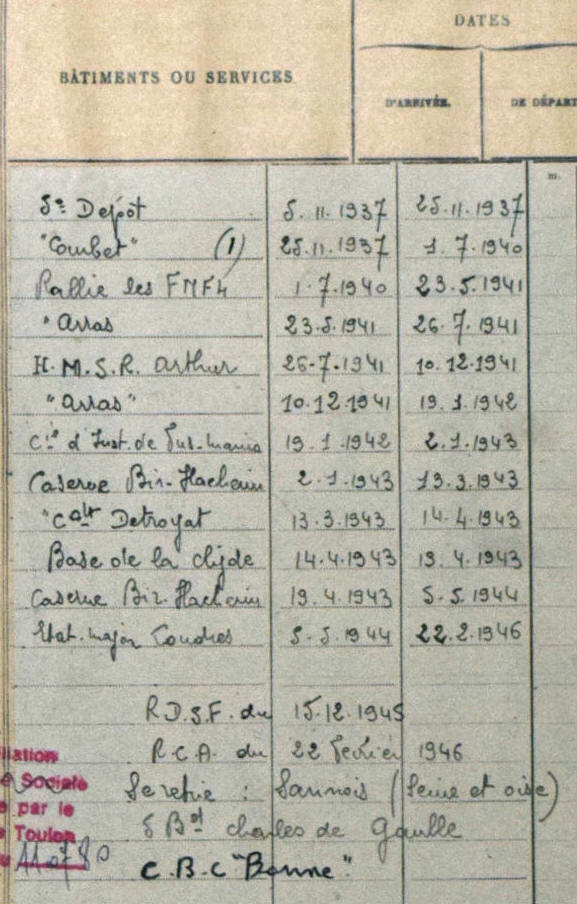 DATES
BÂTIMENTS OU SERVICES
D'ARRIVÉE. DE DÉPART
m.
5e Depot 5.11.1937 25.11.1937
"Courbet" (1) 25.11.1937 1.7.1940
Rallie les FNFL 1.7.1940 23.5.1941
"Arras 23.5.1941 26.7.1941
H.M.S.R. Arthur 26-7-1941 10.12.1941
"Arras" 10.12.1941 19.1.1942
Cie d'Inst. de Fus-marins 19.1.1942 2.1.1943
Caserne Bir-Hacheim 2.1.1943 13.3.1943
"Cdt Detroyat 13.3.1943 14.4.1943
Base de la clyde 14.4.1943 19.4.1943
Caserne Bir. Hacheim 19.4.1943 5-5.1944
Etat-major Londres 5-5.1944 22.2.1946
R.D.S.F. du 15.12.1945
R.C.A. du 22 Fevrier 1946
Se retire : Sannois (Seine et oise)
5 Bd charles de Gaulle
C.B.C "Bonne".
Sociale
par le
Toulon